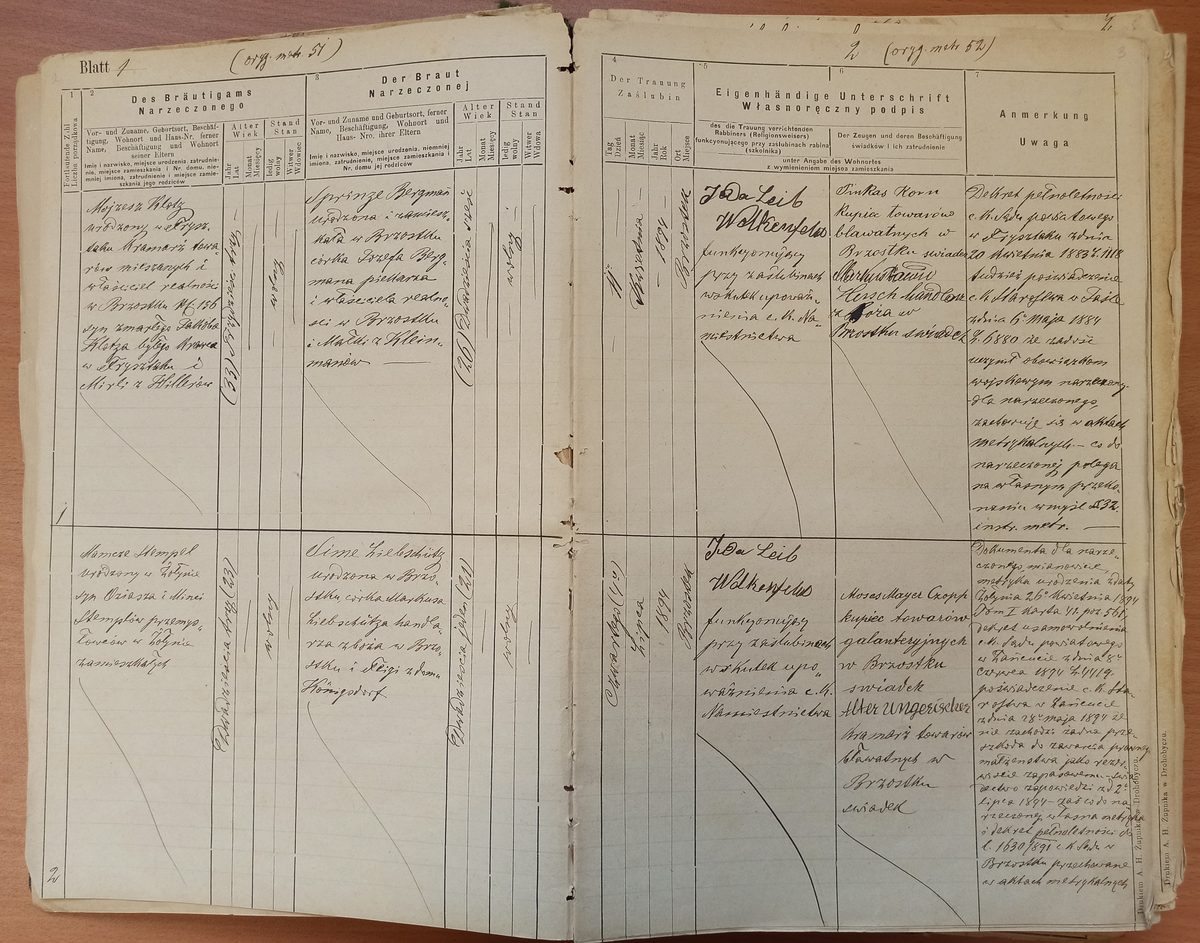 Blatt 1
(oryg. metr. 51)
1
2
3
Fortlaufende Zahl
Liczba porządkowa
Des Bräutigams
Narzeczonego
Vor- und Zuname, Geburtsort, Beschäf-
tigung, Wohnort und Haus-Nr. ferner
Name, Beschäftigung und Wohnort
seiner Eltern
Imię i nazwisko, miejsce urodzenia, zatrudnie-
nie, miejsce zamieszkania i Nr. domu nie-
mniej imiona, zatrudnienie i miejsce zamie-
szkania jego rodziców
Alter
Wiek
Jahr
Lat
Monat
Miesięcy
Stand
Stan
ledig
wolny
Witwer
Wdowiec
Der Braut
Narzeczonej
Vor- und Zuname und Geburtsort, ferner
Name, Beschäftigung, Wohnort und
Haus- Nro. ihrer Eltern
Imię i nazwisko, miejsce urodzenia, niemniej
imiona, zatrudnienie, miejsce zamieszkania i
Nr. domu jej rodziców
Alter
Wiek
Jahr
Lat
Monat
Miesięcy
Stand
Stan
ledig
wolny
Witwe
Wdowa
1
Mojzesz Klotz
urodzony w Frysz-
taku kramarz towa-
rów mieszanych i
właściciel realności
w Brzostku № 156
syn zmarłego Jakóba
Klotza byłego krawca
w Frysztaku i
Mirli z Hillerów
(33) trzydzieści trzy
wolny
Sprinze Bergman
urodzona i zamiesz-
kała w Brzostku
córka Józefa Berg-
mana piekarza
i właściciela realno-
ści w Brzostku
i Małki z Klein-
manów
(26) Dwadzieścia sześć
wolny
2
Mamcze Stempel
urodzony w Żołynie
syn Oziasza i Minci
Stemplów przemys-
łowców w Żołynie
zamieszkałych
Dwadzieścia trzy (23)
wolny
Sime Liebschütz
urodzona w Brzo-
stku córka Markusa
Liebschütza handla-
rza zboża w Brzo-
stku i Feigi z domu
Königsdorf
Dwadzieścia jeden (21)
wolny
2 (oryg. metr 52)
2
3
4
Der Trauung
Zaślubin
Tag
Dzień
Monat
Miesiąc
Jahr
Rok
Ort
Miejsce
5
6
Eigenhändige Unterschrift
Własnoręczny podpis
des die Trauung verrichtenden
Rabbiners (Religionsweisers)
funkcyonującego przy zaślubinach rabina
(szkolnika)
Der Zeugen und deren Beschäftigung
świadków i ich zatrudnienie
unter Angabe des Wohnortes
z wymienieniem miejsca zamieszkania
7
Anmerkung
Uwaga
Kwietnia
1894
Brzostek
Juda Leib
Wolkenfeld
funkyonujący
przy zaślubinach
wskutek upoważ-
nienia c.k. Na-
miestnictwa
Pinkas Korn
kupiec towarów
bławatnych w
Brzostku świadek
Hersch handlarz
zboża w
Brzostku świadek
Dekret pełnoletności
c.k. Sądu powiatowego
w Frysztaku z dnia
20 kwietnia 1883 L. 1118
tudzież poświadczenie
c.k. Starostwa w Jaśle
z dnia 6. Maja 1884
L. 6880 że zadość
uczynił obowiązkom
wojskowym narzeczony
dla narzeczonego,
zachowuje się w aktach
metrykalnych – co do
narzeczonej polega
na własnym przeko-
naniu w myśl § 32.
instr. metr.
Czwartego (4.)
Lipca
1894
Brzostek
Juda Leib
Wolkenfeld
funkyonujący
przy zaślubinach
wskutek upo-
ważnienia c.k.
Namiestnictwa
Moses Mayer Czopp
kupiec towarów
galanteryjnych
w Brzostku
świadek
Alter Ungerischer
kramarz towarów
bławatnych w
Brzostku
świadek
Dokumenta dla narze-
czonego, mianowicie
metryka urodzenia z daty
Żołynia 26. kwietnia 1894
Tom I karta 41. poz 561,
dekret usamowolnienia
c.k. Sądu powiatowego
w Łańcucie z dnia 8.
Czerwca 1894 L. 4419.
poświadczenie c.k. Sta-
rostwa w Łańcucie
z dnia 28. maja 1894 że
nie zachodzi żadna prze-
szkoda do zawarcia prawnego
małżeństwa jako rezer-
wiście zapasowemu – świa-
dectwo zapowiedzi z d 2.
lipca 1894 – zaś co do na-
rzeczonej własna metryka
i dekret pełnoletności do
l. 1630/891 c.k. Sądu w
Brzostku przechowane
w aktach metrykalnych
Drukiem A. H. Żupnika w Drohobyczu.
Drukiem A. H. Żupnika w Drohobyczu.